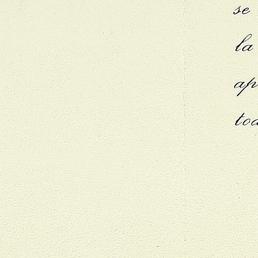 se
la
ap
tod